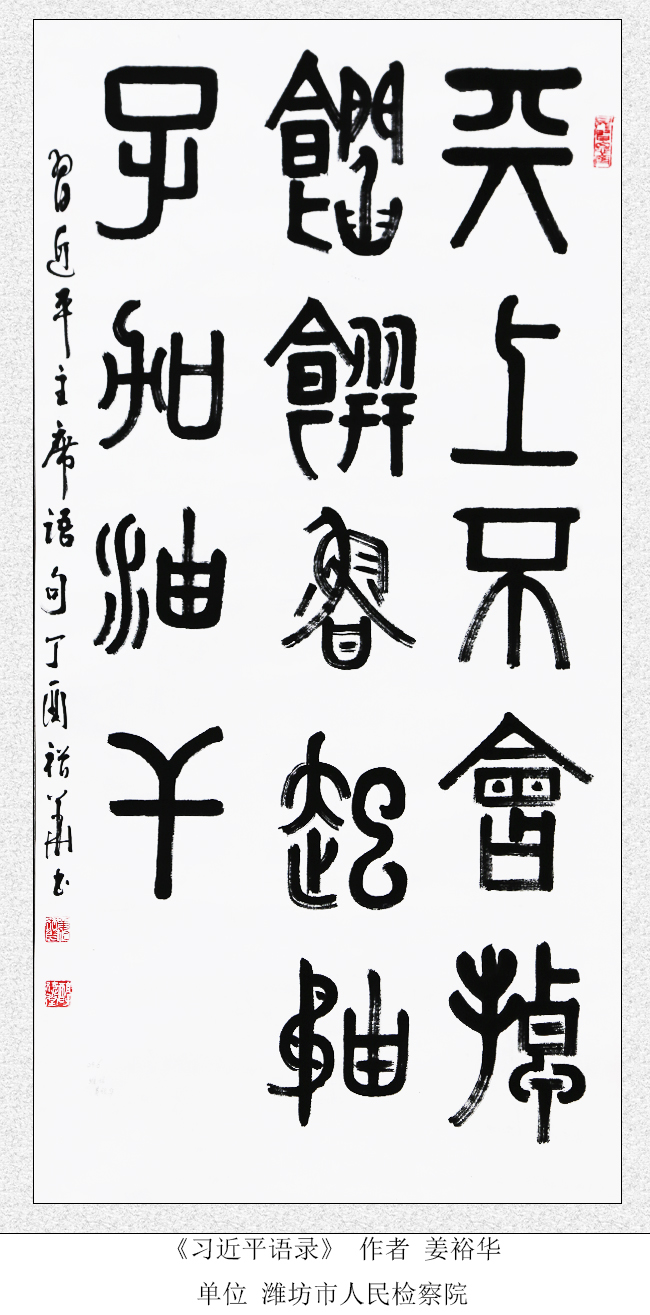 天上不會掉
餡餅魯起袖
子加油干
習近平主席語句丁酉裕華书
《习近平语录》 作者 姜裕华
单位 潍坊市人民检察院